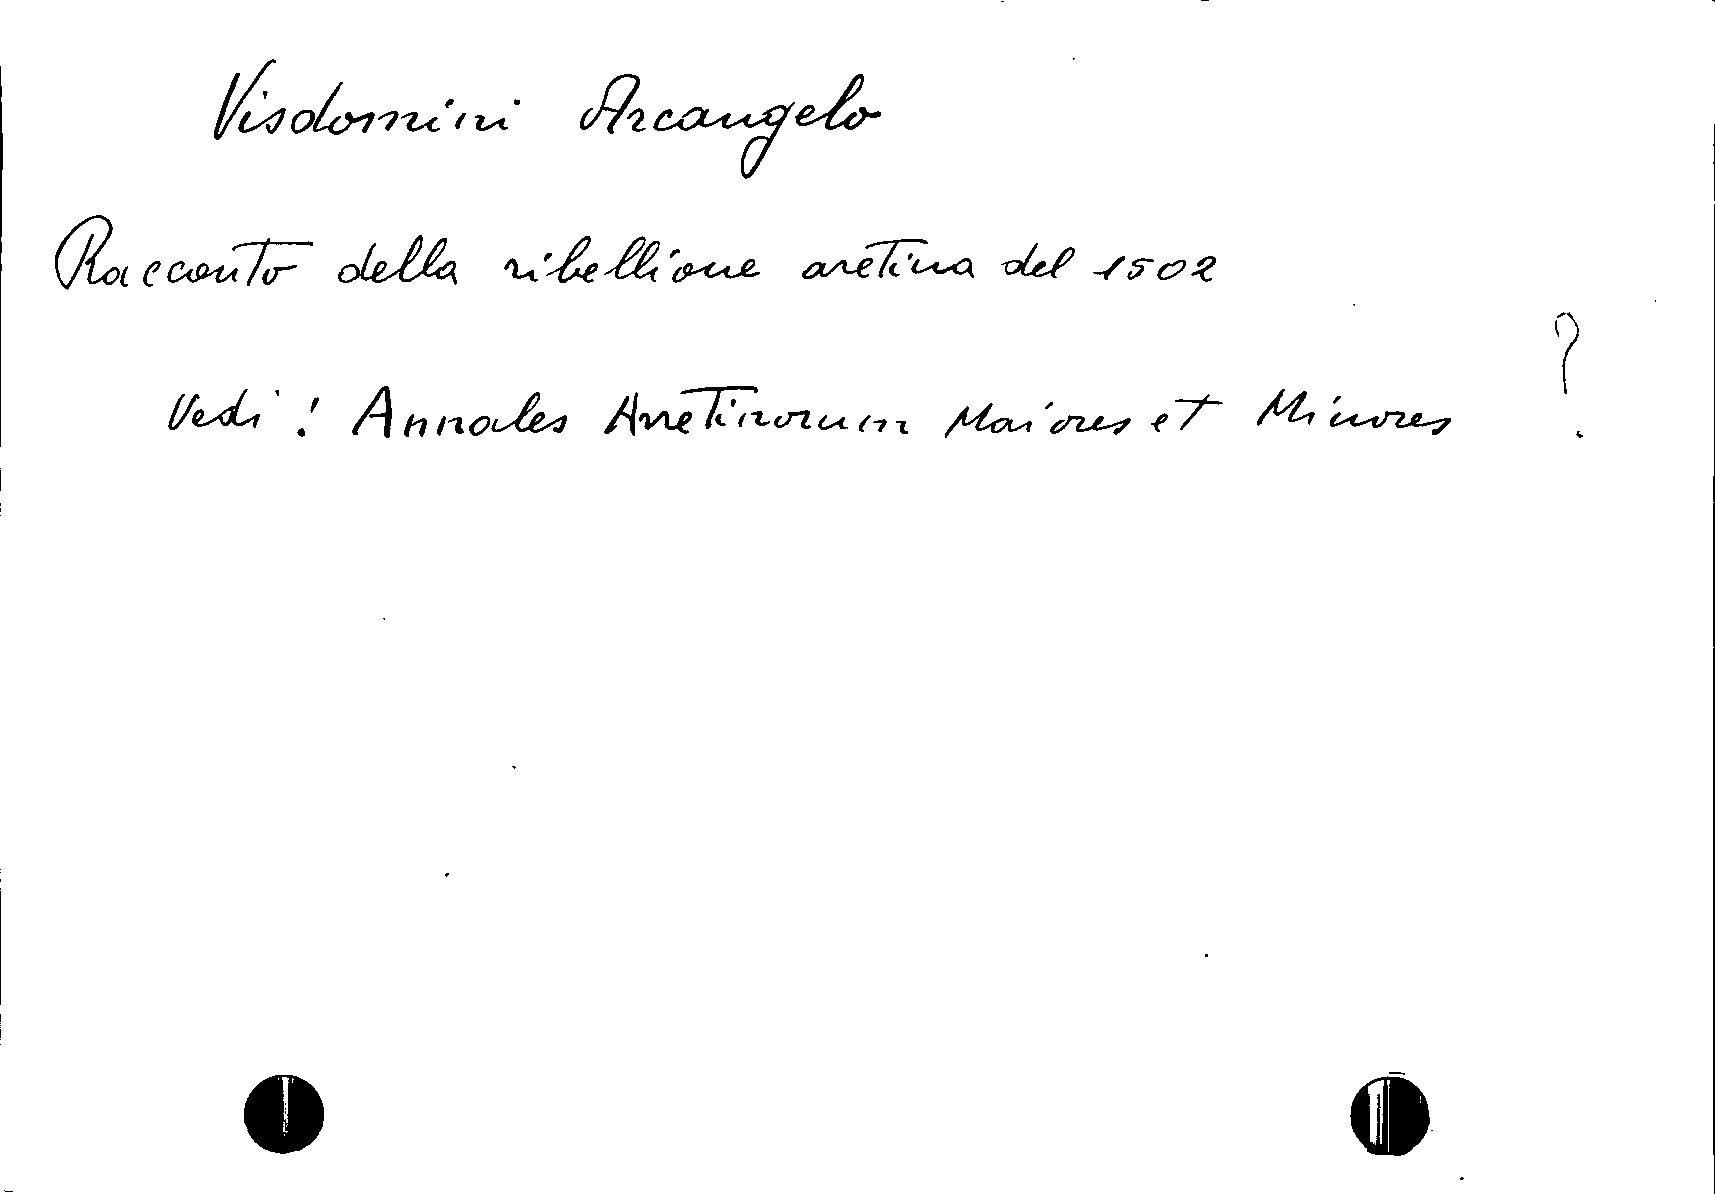 Visdomini Arcangelo
Racconto della ribellione aretina del 1502
Vedi: Annales Arretinorum Maiores et Minores ?